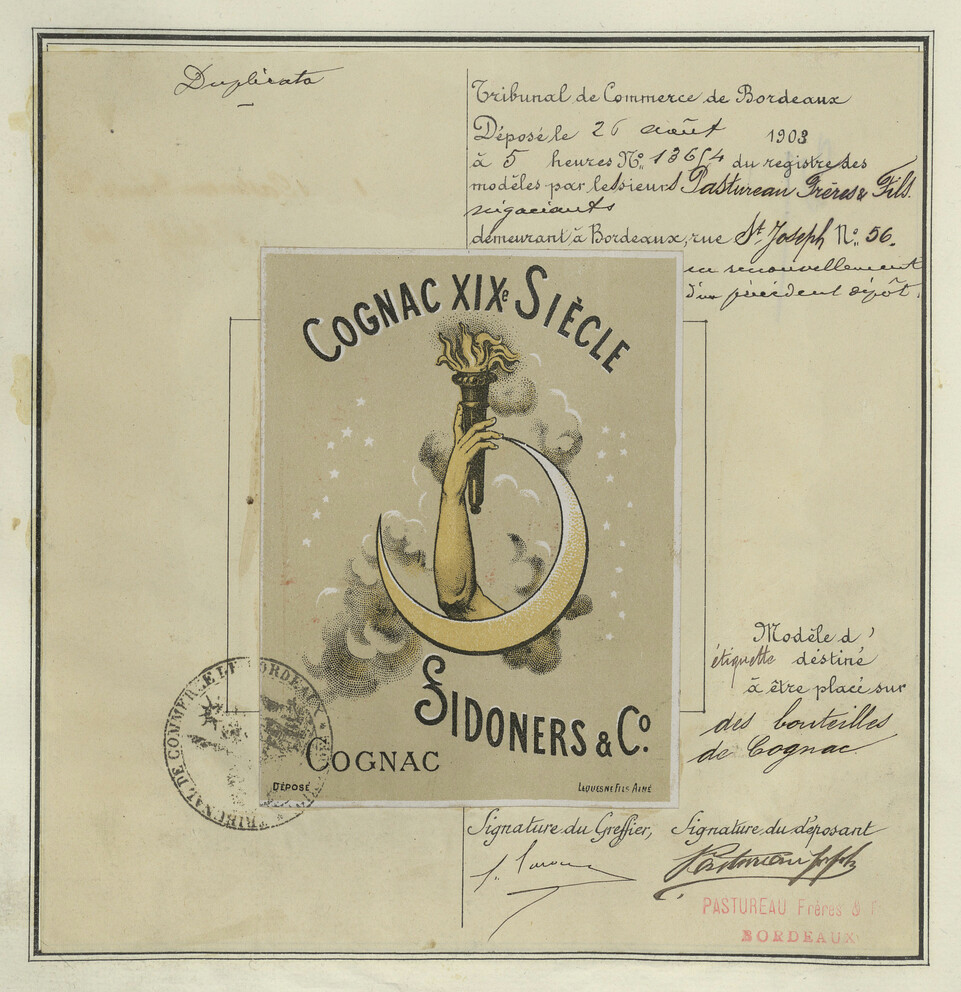 Duplicata
Tribunal de Commerce de Bordeaux
Déposé le 26 août 1903
à 5 heures No. 13654 du registre des
modèles par les sieurs Pastureau Frères & Fils.
négociants
demeurant à Bordeaux, rue St. Joseph No. 56.
en renouvellement
d'un précédent dépôt.
COGNAC XIXe SIÈCLE
SIDONERS & Co.
COGNAC
DÉPOSÉ
LAQUESNE FILS AINÉ
Modèle d'
étiquette déstiné
à être placé sur
des bouteilles
de Cognac.
TRIBUNAL DE COMMERCE DE BORDEAUX
Signature du Greffier, Signature du déposant
PASTUREAU Frères & F
BORDEAUX